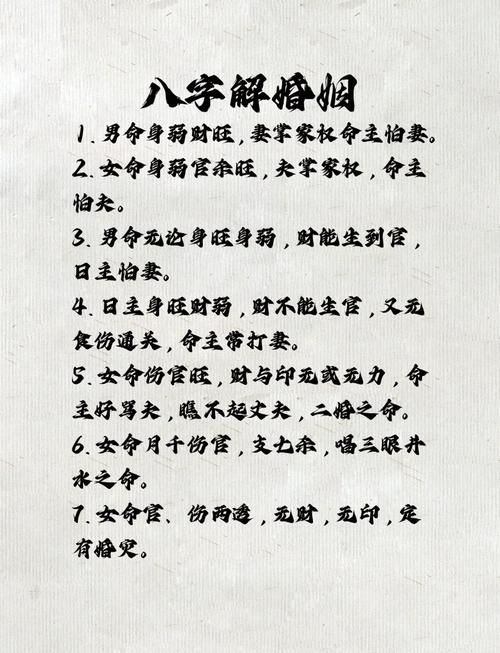 八字解婚姻
1. 男命身弱财旺，妻掌家权命主怕妻。
2. 女命身弱官杀旺，夫掌家权，命主
怕夫。
3. 男命无论身旺身弱，财能生到官，
日主怕妻。
4. 日主身旺财弱，财不能生官，又无
食伤通关，命主常打妻。
5. 女命伤官旺，财与印无或无力，命
主好骂夫，瞧不起丈夫，二婚之命。
6. 女命月干伤官，支七杀，唱三眼井
水之命。
7. 女命官、伤两透，无财，无印，定
有婚灾。